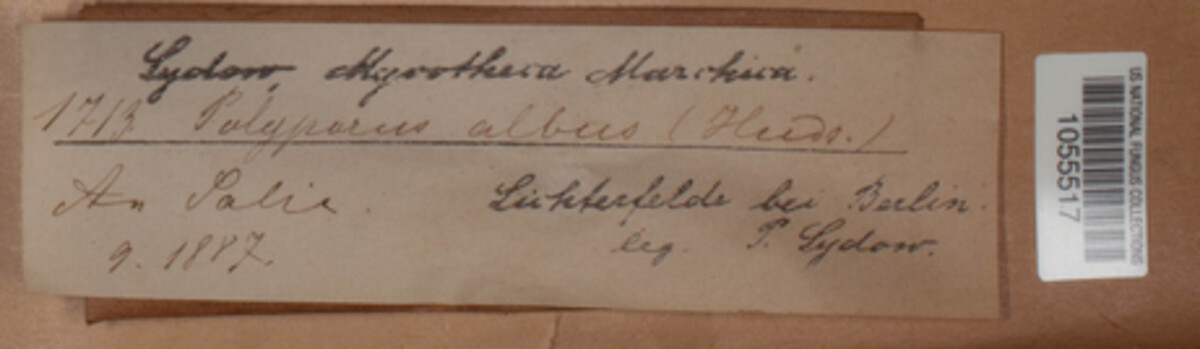 Sydow, Mycotheca Marchica.
1713 Polyporus albus (Huds.)
An Salix.
9. 1887.
Lichterfelde bei Berlin.
leg. P. Sydow.
US NATIONAL FUNGUS COLLECTIONS
1055517